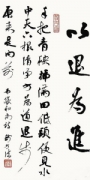 以退為進
手把青秧插滿田低頭便見水
中天六根清淨方為道退步
原來是向前